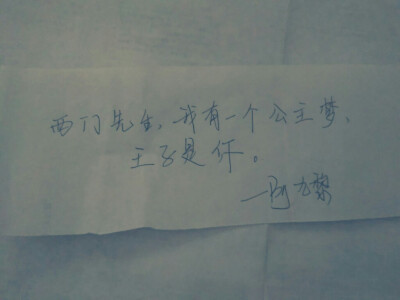 西门先生，我有一个公主梦、
王子是你。
—阿九黎